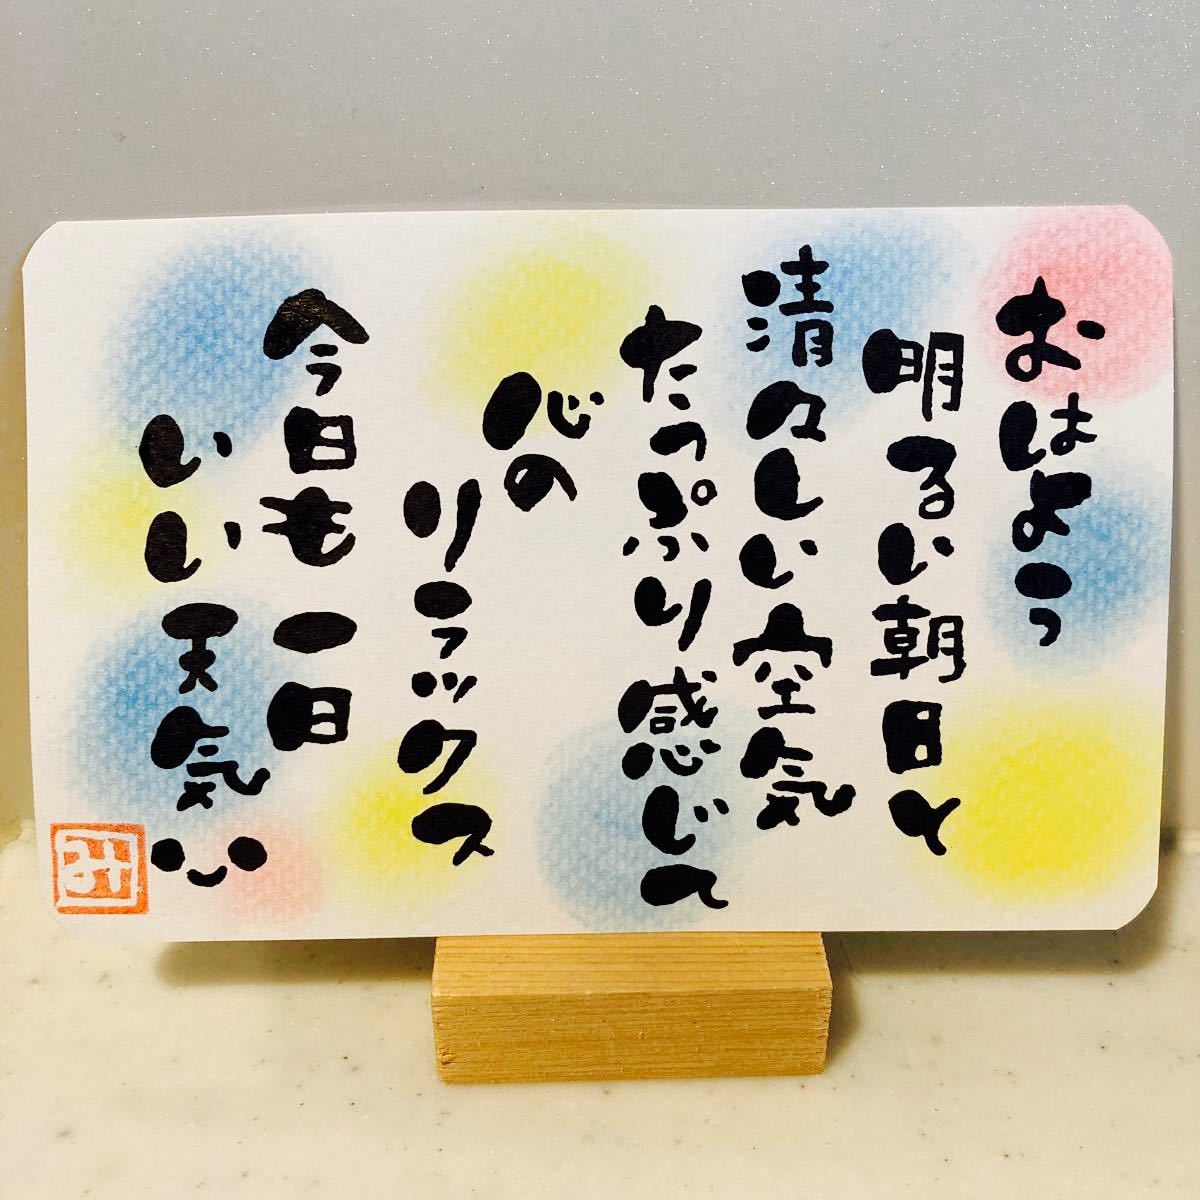 おはよう
明るい朝日と
清々しい空気
たっぷり感じて
心の
リラックス
今日も一日
いい天気
み